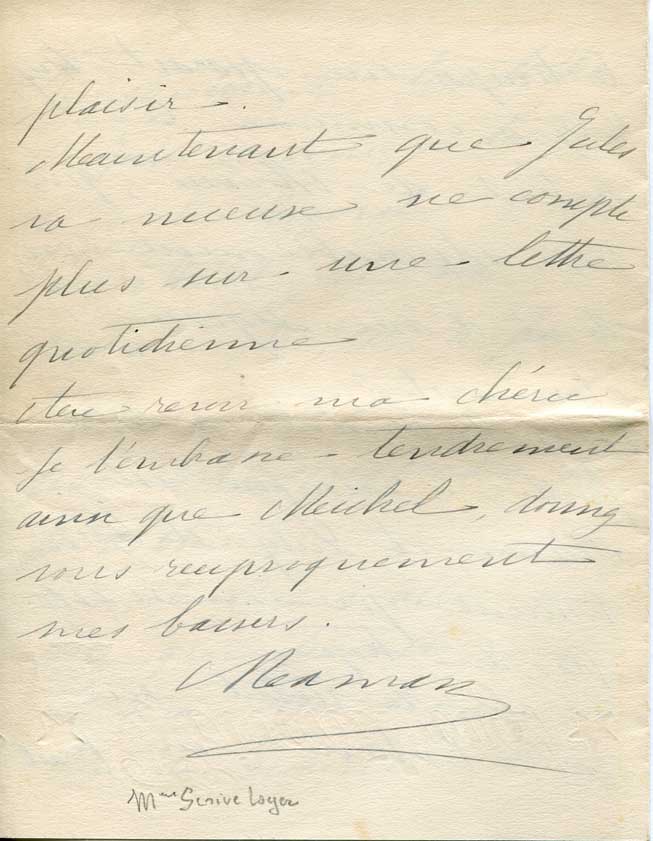 plaisir.
Maintenant que Jules
va mieux ne compte
plus sur une lettre
quotidienne
Au revoir ma chérie
Je t'embrasse tendrement
ainsi que Michel, donnez
vous réciproquement
mes baisers.
Maman
Mme Scrive Loyer